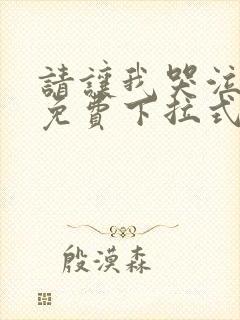 請讓我哭泣
免費下拉式
殷漠森